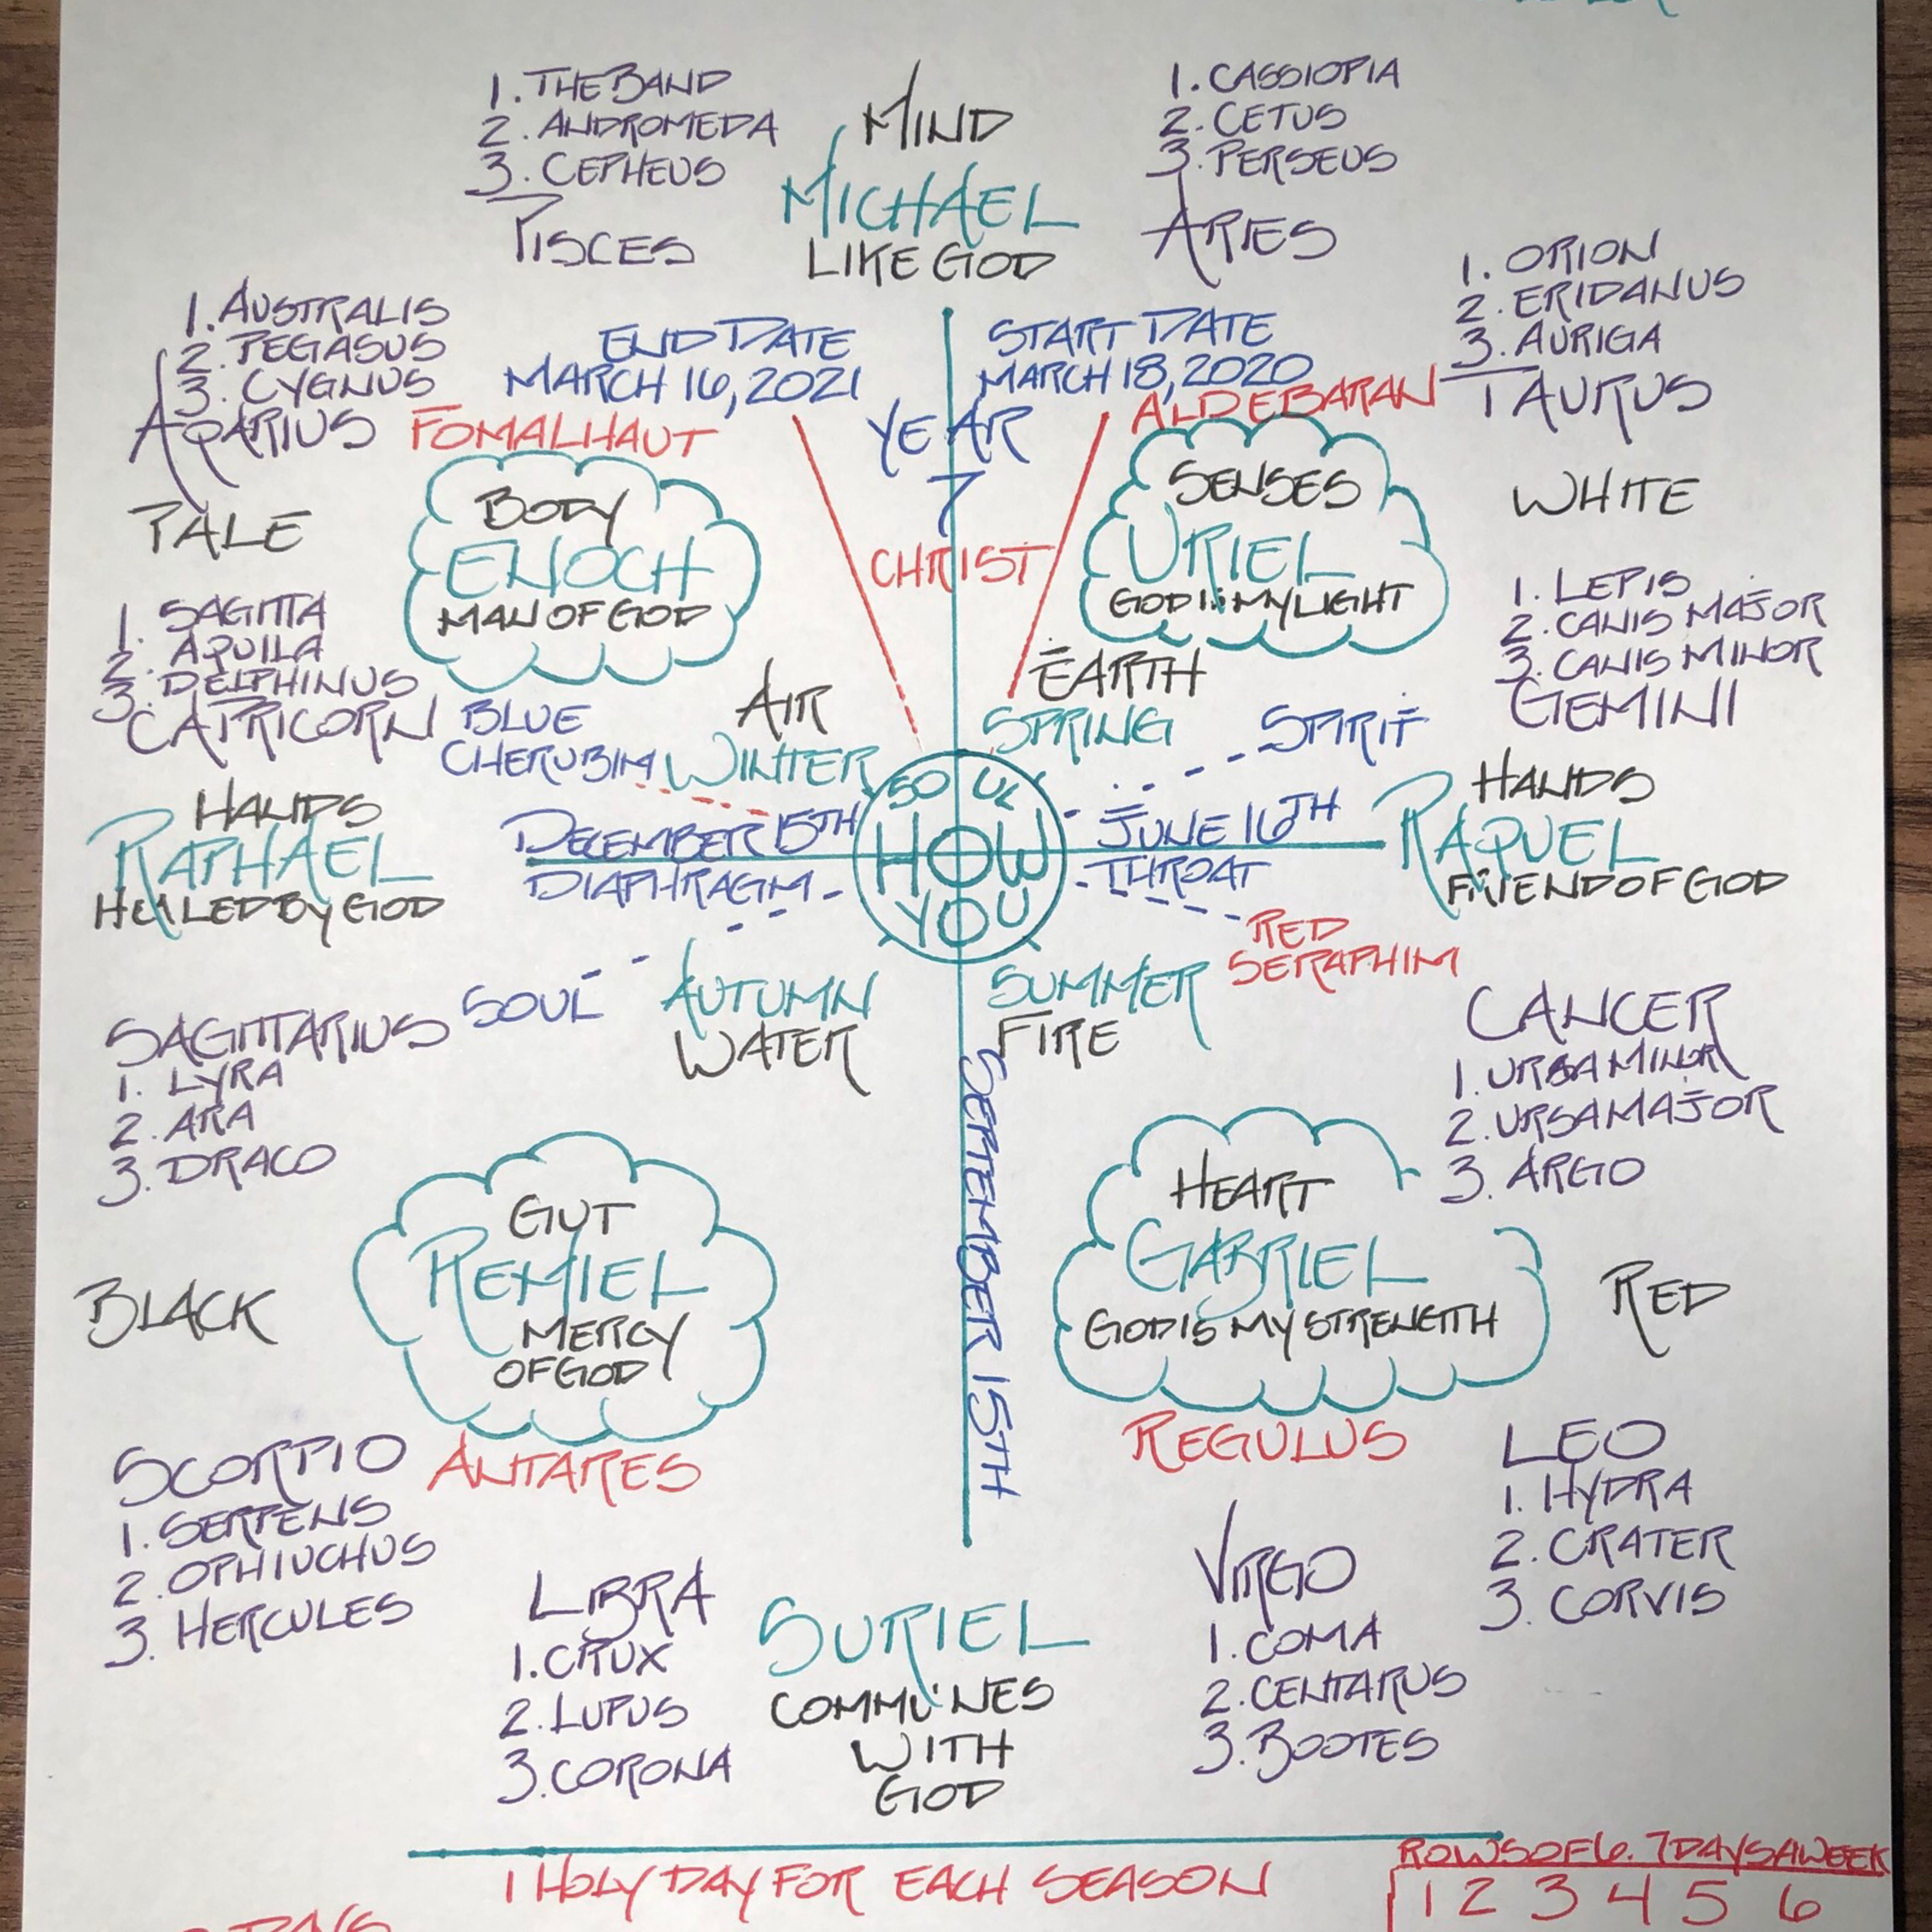 1. THE BAND
2. ANDROMEDA
3. CEPHEUS
PISCES
MIND
MICHAEL
LIKE GOD
1. CASSIOPIA
2. CETUS
3. PERSEUS
ARIES
1. ORION
2. ERIDANUS
3. AURIGA
TAURUS
1. AUSTRALIS
2. PEGASUS
3. CYGNUS
AQARIUS
FOMALHAUT
END DATE
MARCH 16, 2021
START DATE
MARCH 18, 2020
YEAR
7
ALDEBARAN
CHRIST
PALE
BODY
ENOCH
MAN OF GOD
SENSES
URIEL
GOD IS MY LIGHT
WHITE
1. SAGITTA
2. AQUILA
3. DELPHINUS
CAPRICORN
BLUE
CHERUBIM
AIR
WINTER
EARTH
SPRING
SPIRIT
1. LEPIS
2. CANIS MAJOR
3. CANIS MINOR
GEMINI
HANDS
RAPHAEL
HEALED BY GOD
DECEMBER 15TH
DIAPHRAGM
SOUL
HOW
YOU
JUNE 16TH
THROAT
HANDS
RAQUEL
FRIEND OF GOD
RED
SERAPHIM
SOUL
AUTUMN
WATER
SUMMER
FIRE
SEPTEMBER 15TH
SAGITTARIUS
1. LYRA
2. ARA
3. DRACO
CANCER
1. URSA MINOR
2. URSA MAJOR
3. ARGO
BLACK
GUT
REMIEL
MERCY
OF GOD
ANTARES
HEART
GABRIEL
GOD IS MY STRENGTH
REGULUS
RED
SCORPIO
1. SERPENS
2. OPHIUCHUS
3. HERCULES
LIBRA
1. CRUX
2. LUPUS
3. CORONA
SURIEL
COMMUNES
WITH
GOD
VIRGO
1. COMA
2. CENTARUS
3. BOOTES
LEO
1. HYDRA
2. CRATER
3. CORVIS
1 HOLY DAY FOR EACH SEASON
ROWS OF 6. 7 DAYS A WEEK
1 2 3 4 5 6